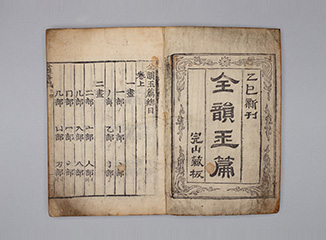 乙巳新刊
全韻玉篇
完山藏板
全韻玉篇總目
卷上
一畫
一部 丨部
丶部 丿部
乙部 亅部
二畫
二部 亠部 人部
儿部 入部 八部
冂部 冖部 冫部
几部 凵部 刀部